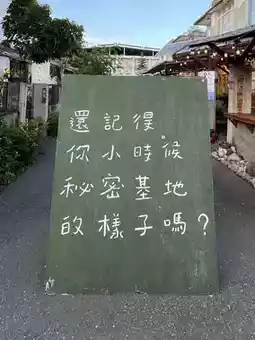 還記得
你小時候
秘密基地
的樣子嗎？